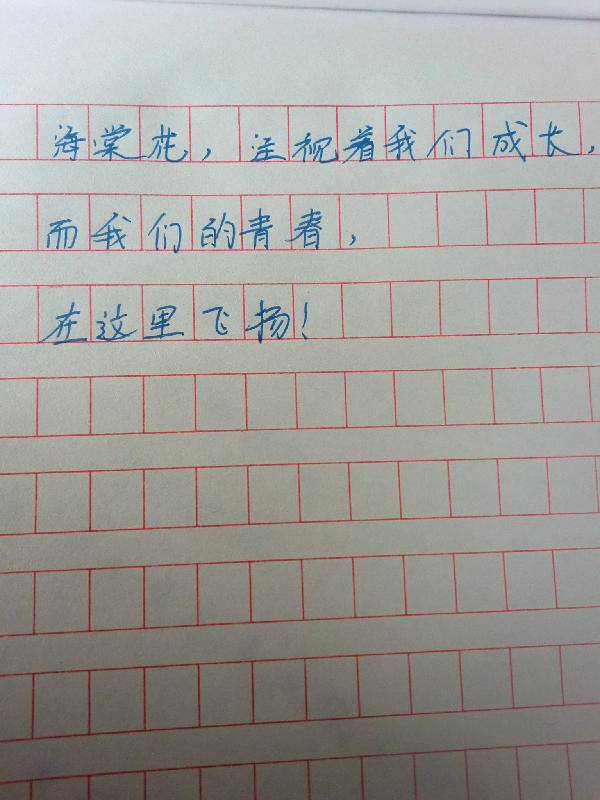 海棠花，注视着我们成长，
而我们的青春，
在这里飞扬！